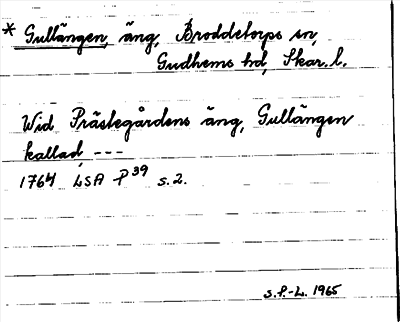 * Gullängen, äng, Broddetorps sn,
Gudhems hd, Skar. l.
Wid Prästegårdens äng, Gullängen
kallad, ---
1764 LSA P39 s. 2.
S.P.-L. 1965